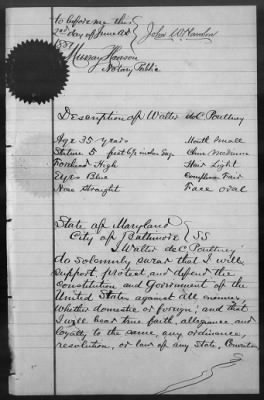 to before me this
2nd day of June A.D.
1887
Murray Hanson
Notary Public
Description of Walter deC Poultney
Age 35 years
Mouth Small
Stature 5 feet 6½ inches Eng.
Chin Medium
Forehead High
Hair Light
Eyes Blue
Complexion Fair
Nose Straight
Face Oval
State of Maryland
City of Baltimore } SS
I Walter deC. Poultney
do solemnly swear that I will
support, protect, and defend the
Constitution and Government of the
United States against all enemies,
whether domestic or foreign; and that
I will bear true faith, allegiance and
loyalty to the same, any ordinance,
resolution, or law of any State, Convention